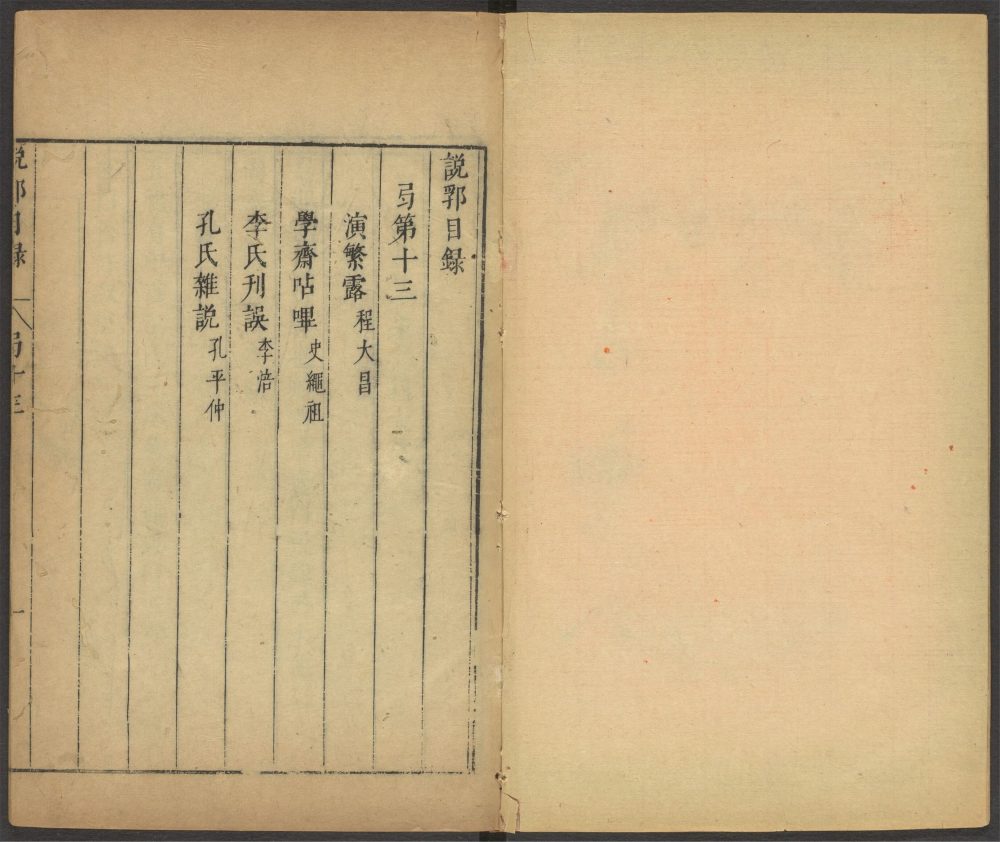 説郛目録
弓第十三
演繁露 程大昌
學齋呫嗶 史繩祖
李氏刋誤 李涪
孔氏雜説 孔平仲
説郛目録 弓十三 一